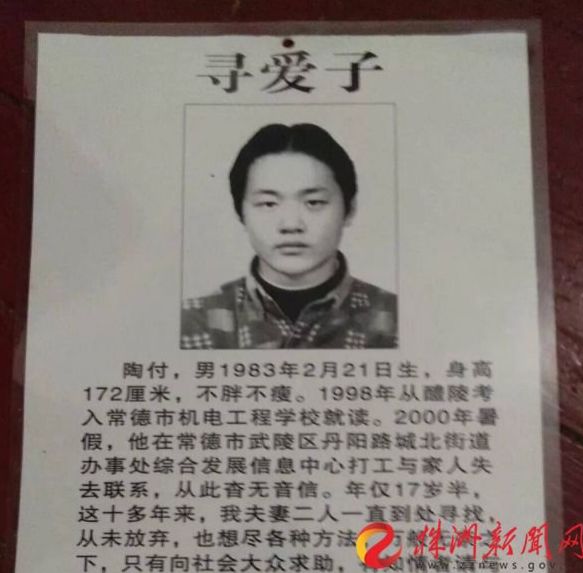 寻爱子
陶付，男1983年2月21日生，身高
172厘米，不胖不瘦。1998年从醴陵考
入常德市机电工程学校就读。2000年暑
假，他在常德市武陵区丹阳路城北街道
办事处综合发展信息中心打工与家人失
去联系，从此杳无音信。年仅17岁半，
这十多年来，我夫妻二人一直到处寻找，
从未放弃，也想尽各种方法
下，只有向社会大众求助，
株洲新闻网
www.zznews.gov.cn